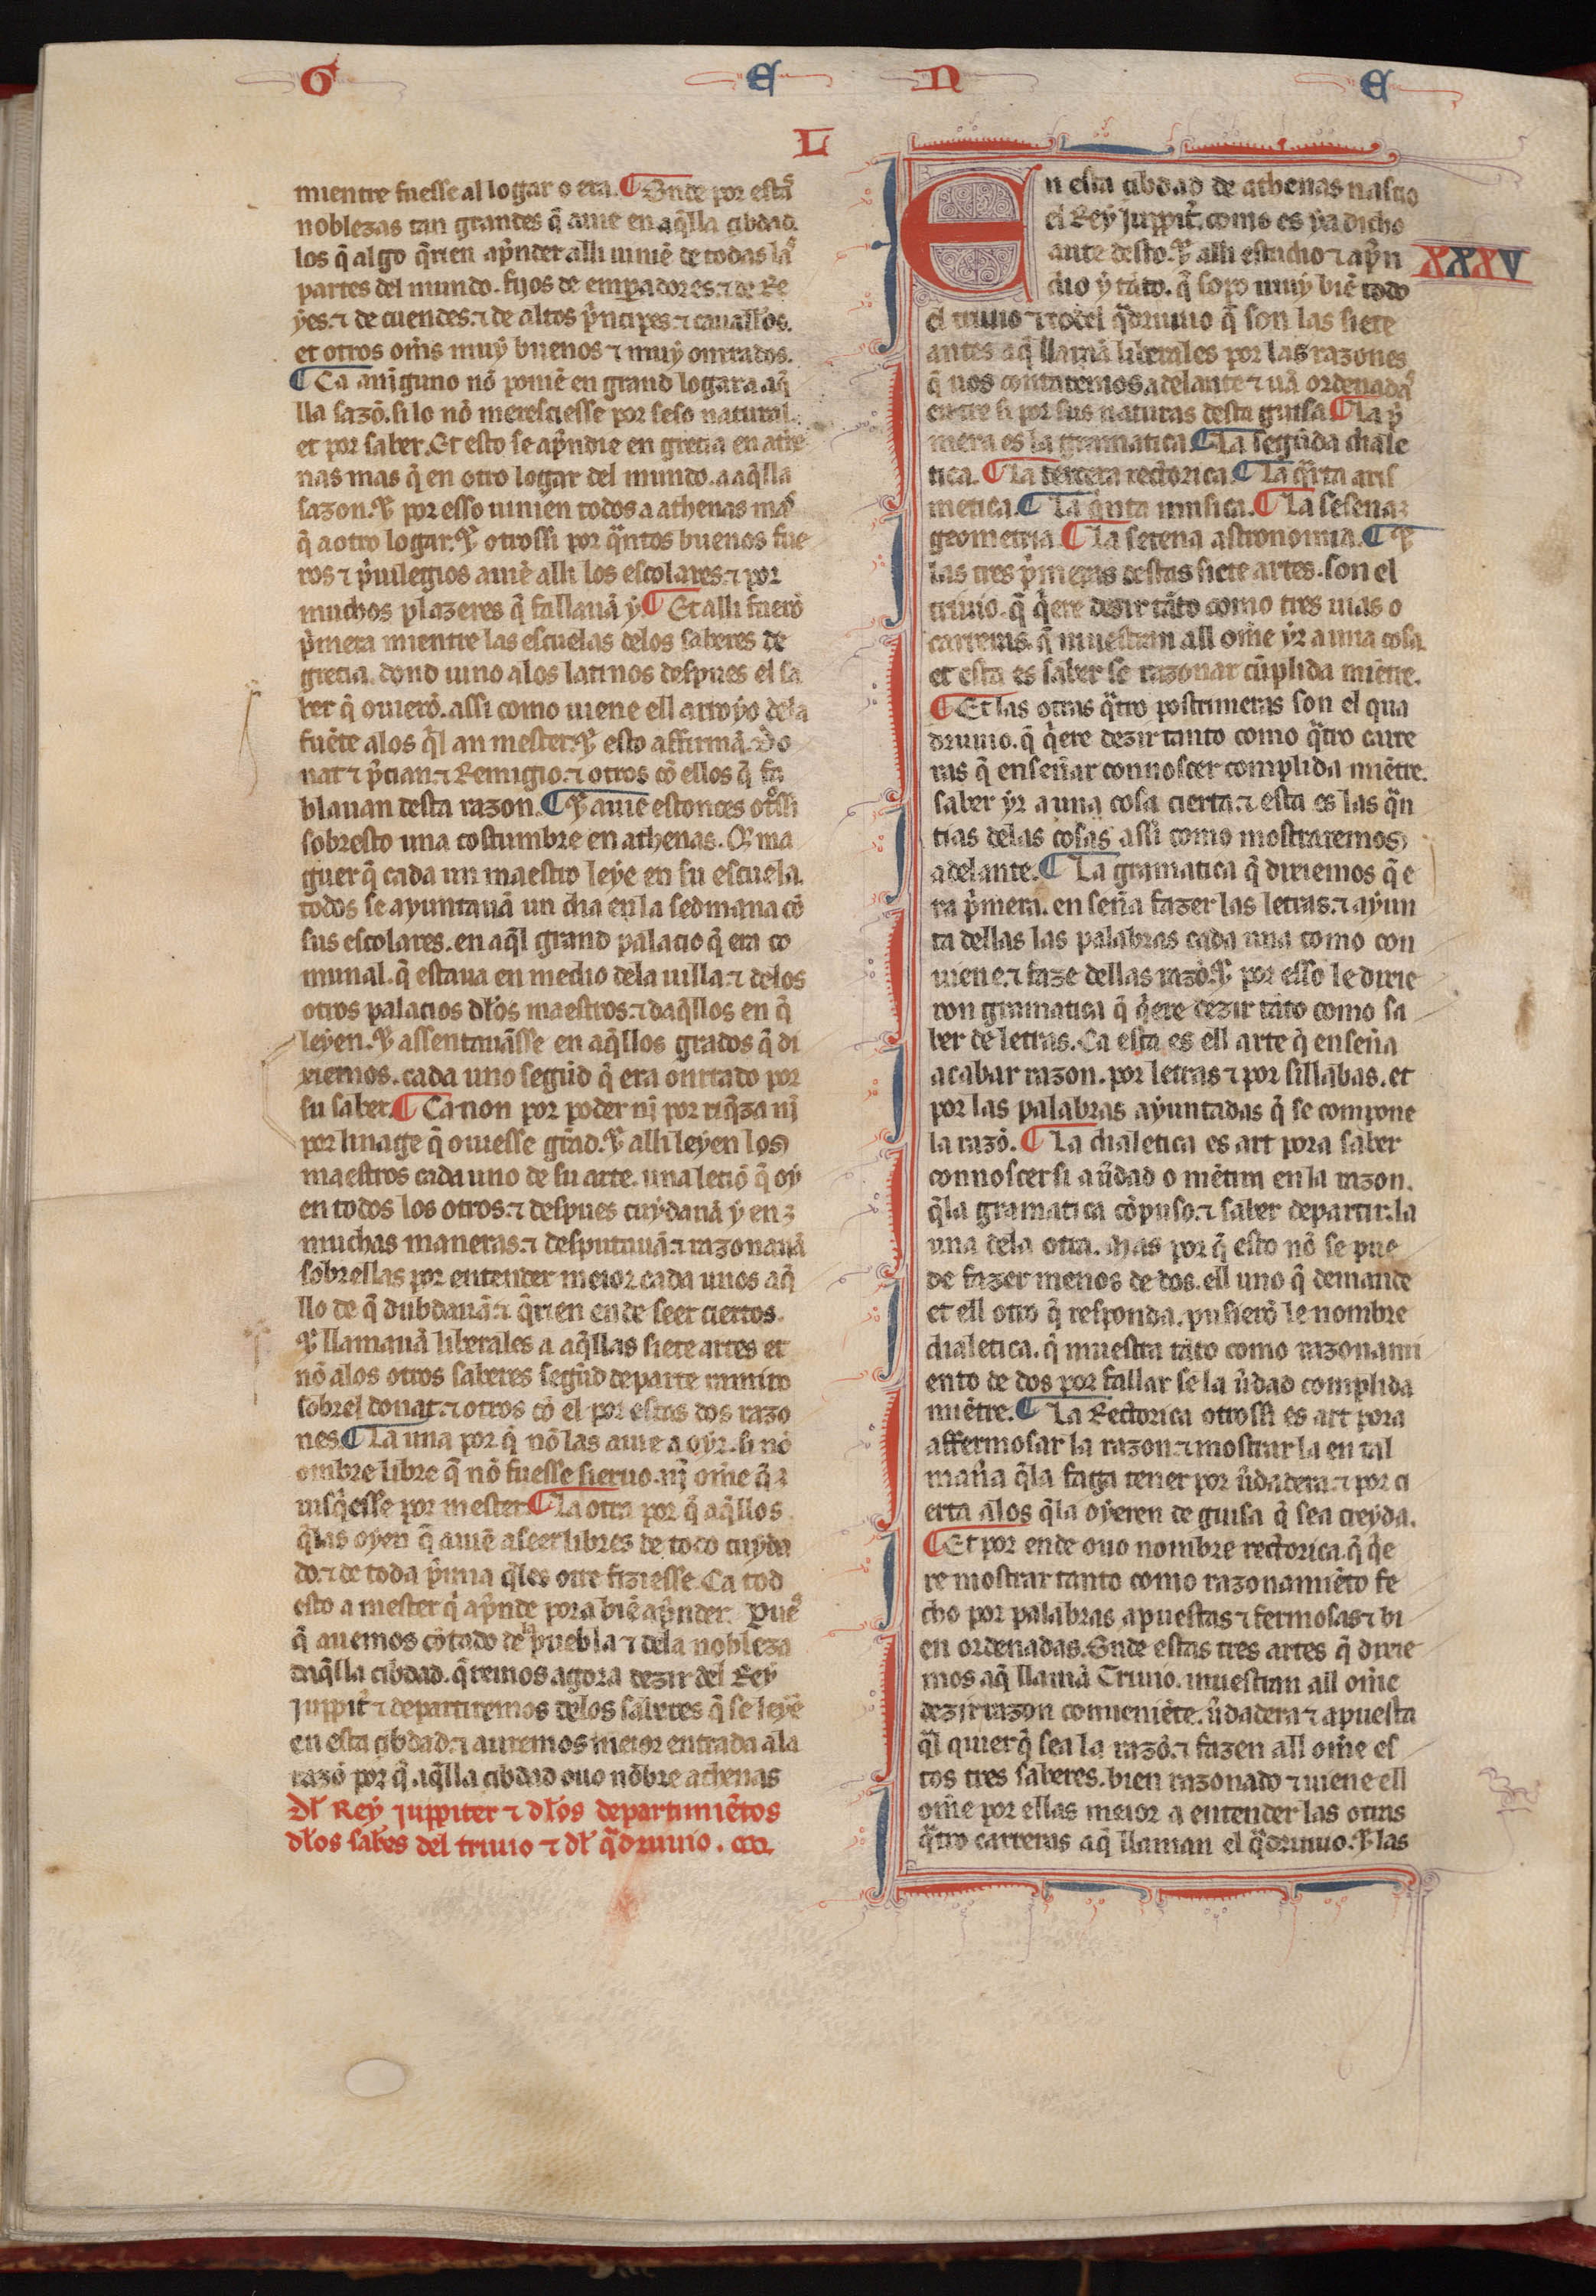 G E N E
L
mientre fuesse al logar o era. ¶ Onde por estas
noblezas tan grandes q̃ auie en aq̃lla cibdad.
los q̃ algo q̃rien ap̃nder alli uiniẽ de todas las
partes del mundo. fijos de emp̃adores. ⁊ de Re
yes. ⁊ de cuendes. ⁊ de altos p̃ncipes ⁊ caualłos.
et otros om̃s muy buenos ⁊ muy onrrados.
¶ Ca aninguno nõ poniẽ en grand logar a aq̃
lla sazõ. si lo nõ meresciesse por seso natural.
et por saber. Et esto se ap̃ndie en grecia en athe
nas mas q̃ en otro logar del mundo. a aq̃lla
sazon. ⁊ por esso uinien todos a athenas mas
q̃ a otro logar. ⁊ otrossi por q̃ntos buenos fue
ros ⁊ p̃uilegios auiẽ alli los escolares. ⁊ por
muchos plazeres q̃ fallauã y ¶ Et alli fuerõ
p̃mera mientre las escuelas delos saberes de
grecia. dond uino alos latinos despues el sa
ber q̃ ouierõ. assi como uiene ell arroyo dela
fuẽte alos q̃l an mester. ⁊ esto affirmã. Do
nat ⁊ p̃cian. ⁊ Remigio. ⁊ otros cõ ellos q̃ fa
blauan desta razon. ¶ ⁊ auie estonces otr̃ssi
sobresto una costumbre en athenas. Q̃ ma
guer q̃ cada un maestro leye en su escuela.
todos se ayuntauã un dia en la sedmana cõ
sus escolares. en aq̃l grand palacio q̃ era co
munal. q̃ estaua en medio dela uilla. ⁊ delos
otros palacios dłos maestros. ⁊ daq̃llos en q̃
leyen. ⁊ assentauãsse en aq̃llos grados q̃ di
xiemos. cada uno segũd q̃ era onrrado por
su saber. ¶ Ca non por poder nĩ por riq̃za nĩ
por linage q̃ ouiesse grãd. ⁊ alli leyen los
maestros cada uno de su arte. una leciõ q̃ oy
en todos los otros. ⁊ despues cuydauã y en
muchas maneras. ⁊ desputauã. ⁊ razonauã
sobrellas por entender meior cada unos aq̃
llo de q̃ dubdauã. ⁊ q̃rien ende seer ciertos.
⁊ llamauã liberales a aq̃llas siete artes et
nõ alos otros saberes segũd departe ramiro
sobrel donat. ⁊ otros cõ el por estas dos razo
nes. ¶ La una por q̃ nõ las auie a oyr. si nõ
ombre libre q̃ nõ fuesse sieruo. nĩ om̃e q̃
uisq̃esse por mester. ¶ La otra por q̃ aq̃llos
q̃las oyen q̃ auiẽ a seer libres de todo cuyda
do. ⁊ de toda p̃mia q̃les otre fiziesse. Ca tod
esto a mester q̃ ap̃nde pora biẽ ap̃nder. Pues
q̃ auemos cõtado dela puebla ⁊ dela nobleza
daq̃lla cibdad. q̃remos agora dezir del Rey
juppiť ⁊ departiremos delos saberes q̃ se leyẽ
en esta cibdad. ⁊ auremos meior entrada ala
razõ por q̃ aq̃lla cibdad ouo nõbre athenas
Dł Rey juppiter ⁊ dłos departimiẽtos
dłos sabes del triuio ⁊ dł q̃druuio.
En esta cibdad de athenas nascio
el Rey juppiť. como es ya dicho
ante desto. ⁊ alli estudio ⁊ ap̃n
XXXV
dio y tãto. q̃ sopo muy biẽ todo
el triuio ⁊ todel q̃druuio q̃ son las siete
artes a q̃ llamã liberales por las razones
q̃ uos contaremos adelante ⁊ uã ordenadas
entre si por sus naturas desta guisa. ¶ La p̃
mera es la gramatica. ¶ La segũda diale
tica. ¶ La tercera rectorica. ¶ La q̃rta aris
metica. ¶ La q̃nta musica. ¶ La sesena
geometria. ¶ La setena astronomia. ¶ ⁊
las tres p̃meras destas siete artes. son el
triuio. q̃ q̃ere dezir tãto como tres uias o
carreras. q̃ muestran all om̃e yr a una cosa.
et esta es saber se razonar cũplida miẽtre.
¶ Et las otras q̃tro postrimeras son el qua
druuio. q̃ q̃ere dezir tanto como q̃tro carre
ras q̃ enseñar connoscer complida miẽtre.
saber yr a una cosa cierta. ⁊ esta es las q̃n
tias delas cosas assi como mostraremos
adelante. ¶ La gramatica q̃ dixiemos q̃ e
ra p̃mera. en seña fazer las letras. ⁊ ayun
ta dellas las palabras cada una como con
uiene. ⁊ faze dellas razõ. ⁊ por esso le dixie
ron gramatica q̃ q̃ere dezir tãto como sa
ber de letras. Ca esta es ell arte q̃ enseña
acabar razon. por letras ⁊ por sillabas. et
por las palabras ayuntadas q̃ se compone
la razõ. ¶ La dialetica es art pora saber
connoscer si a ũdad o mẽtira en la razon.
q̃la gramatica cõpuso. ⁊ saber departir. la
una dela otra. Mas por q̃ esto nõ se pue
de fazer menos de dos. ell uno q̃ demande
et ell otro q̃ responda. pusierõ le nombre
dialetica. q̃ muestra tãto como razonami
ento de dos por fallar se la ũdad complida
miẽtre. ¶ La Rectorica otrossi es art pora
affermosar la razon. ⁊ mostrar la en tal
mañа q̃la faga tener por ũdadera. ⁊ por ci
erta alos q̃la oyeren de guisa q̃ sea creyda.
¶ Et por ende ouo nombre rectorica. q̃ q̃e
re mostrar tanto como razonamiẽto fe
cho por palabras apuestas ⁊ fermosas ⁊ bi
en ordenadas. Onde estas tres artes q̃ dixie
mos a q̃ llamã Triuio. muestran all om̃e
dezir razon conueniẽte. ũdadera ⁊ apuesta
q̃l quier q̃ sea la razõ. ⁊ fazen all om̃e es
tos tres saberes. bien razonado ⁊ uiene ell
om̃e por ellas meior a entender las otras
q̃tro carreras a q̃ llaman el q̃druuio. ⁊ las